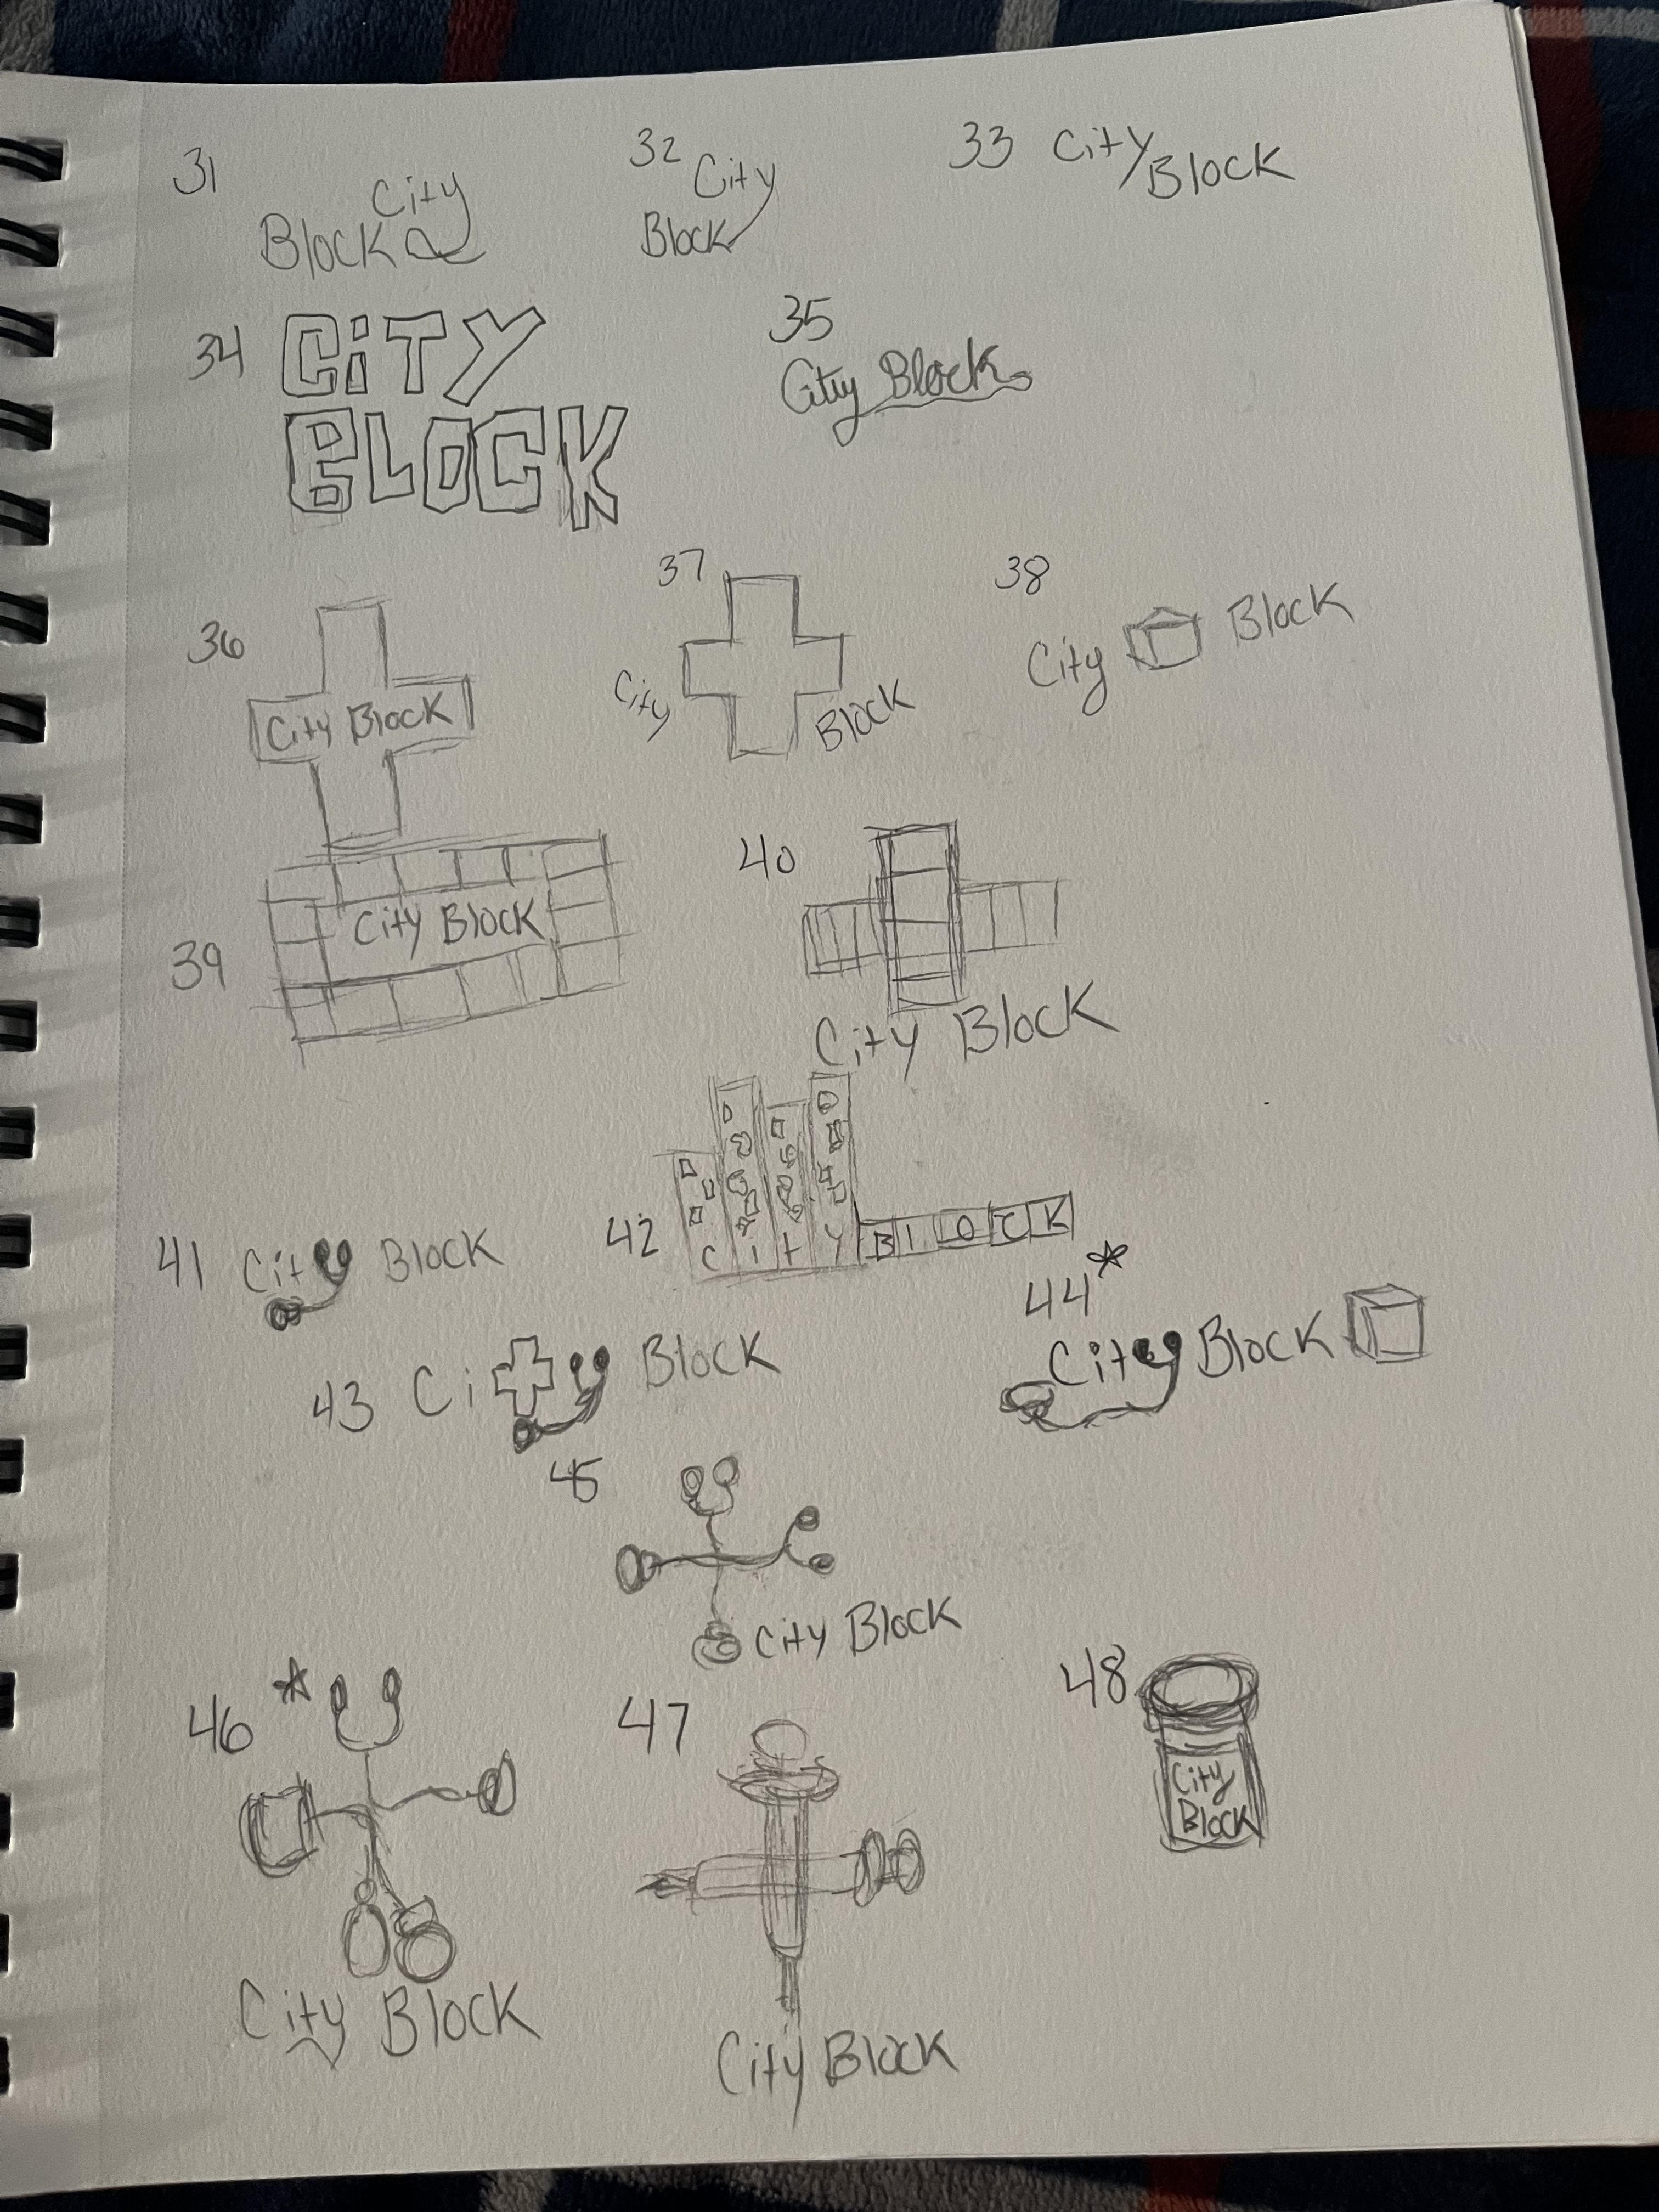 31
City
Block
32
City
Block
33 City
Block
34 CiTY
BLOCK
35
City Block
36
City Block
37
City
Block
38
City Block
39
City Block
40
City Block
41 City Block
42
City BlOCK
43 Ci y Block
44*
City Block
45
City Block
46 *
City Block
47
City Block
48
City
Block